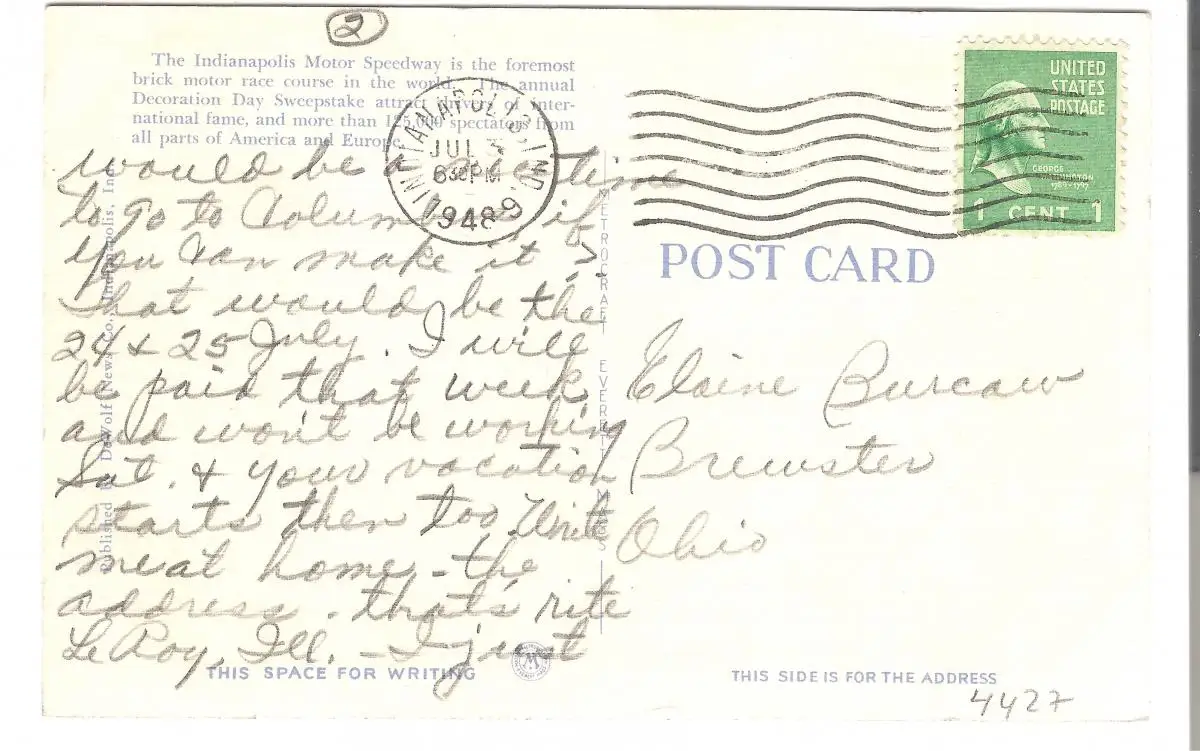 2
The Indianapolis Motor Speedway is the foremost
brick motor race course in the world. The annual
Decoration Day Sweepstake attract drivers of inter-
national fame, and more than 125,000 spectators from
all parts of America and Europe.
INDIANAPOLIS, IND. 9
JUL
6 30 PM
1948
UNITED
STATES
POSTAGE
GEORGE
WASHINGTON
1789-1797
1 CENT 1
POST CARD
would be a time
to go to Columbus if
you can make it
That would be the
24 & 25 July. I will
be paid that week
and won't be working
Sat. & your vacation
starts then too. Write
meat home - the
address - that's rite
LeRoy, Ill. - I just
Elaine Burcaw
Brewster
Ohio
Published by DeWolf News Co., Indianapolis, Ind.
METROCRAFT EVERETT MASS
M
THIS SPACE FOR WRITING
THIS SIDE IS FOR THE ADDRESS
4427